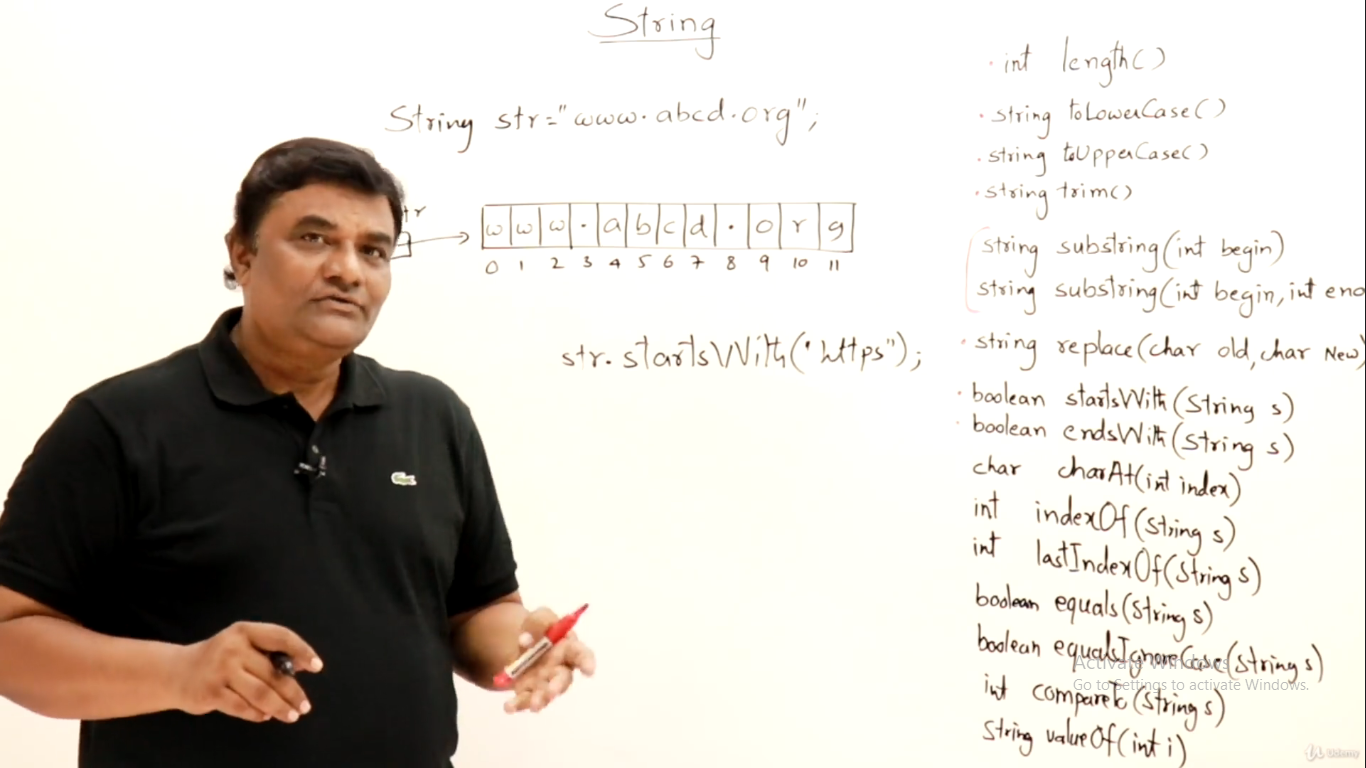 String
String str="www.abcd.org";
tr
w w w . a b c d . o r g
0 1 2 3 4 5 6 7 8 9 10 11
str.startsWith("https");
int length()
string toLowerCase()
string toUpperCase()
string trim()
string substring(int begin)
string substring(int begin, int end
string replace(char old, char New)
boolean startsWith(String s)
boolean endsWith(String s)
char charAt(int index)
int indexOf(String s)
int lastIndexOf(String s)
boolean equals(String s)
boolean equalsIgnoreCase(String s)
int compareTo(String s)
String valueOf(int i)
Activate Windows
Go to Settings to activate Windows.
Udemy